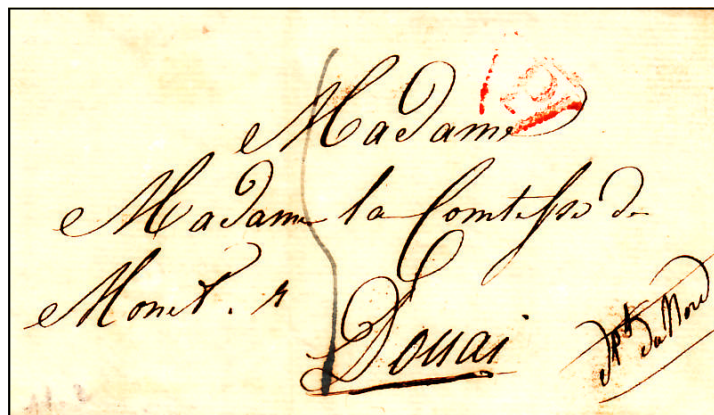 Madame
Madame la Comtesse de
Monet. à
Douai
Dpt du Nord